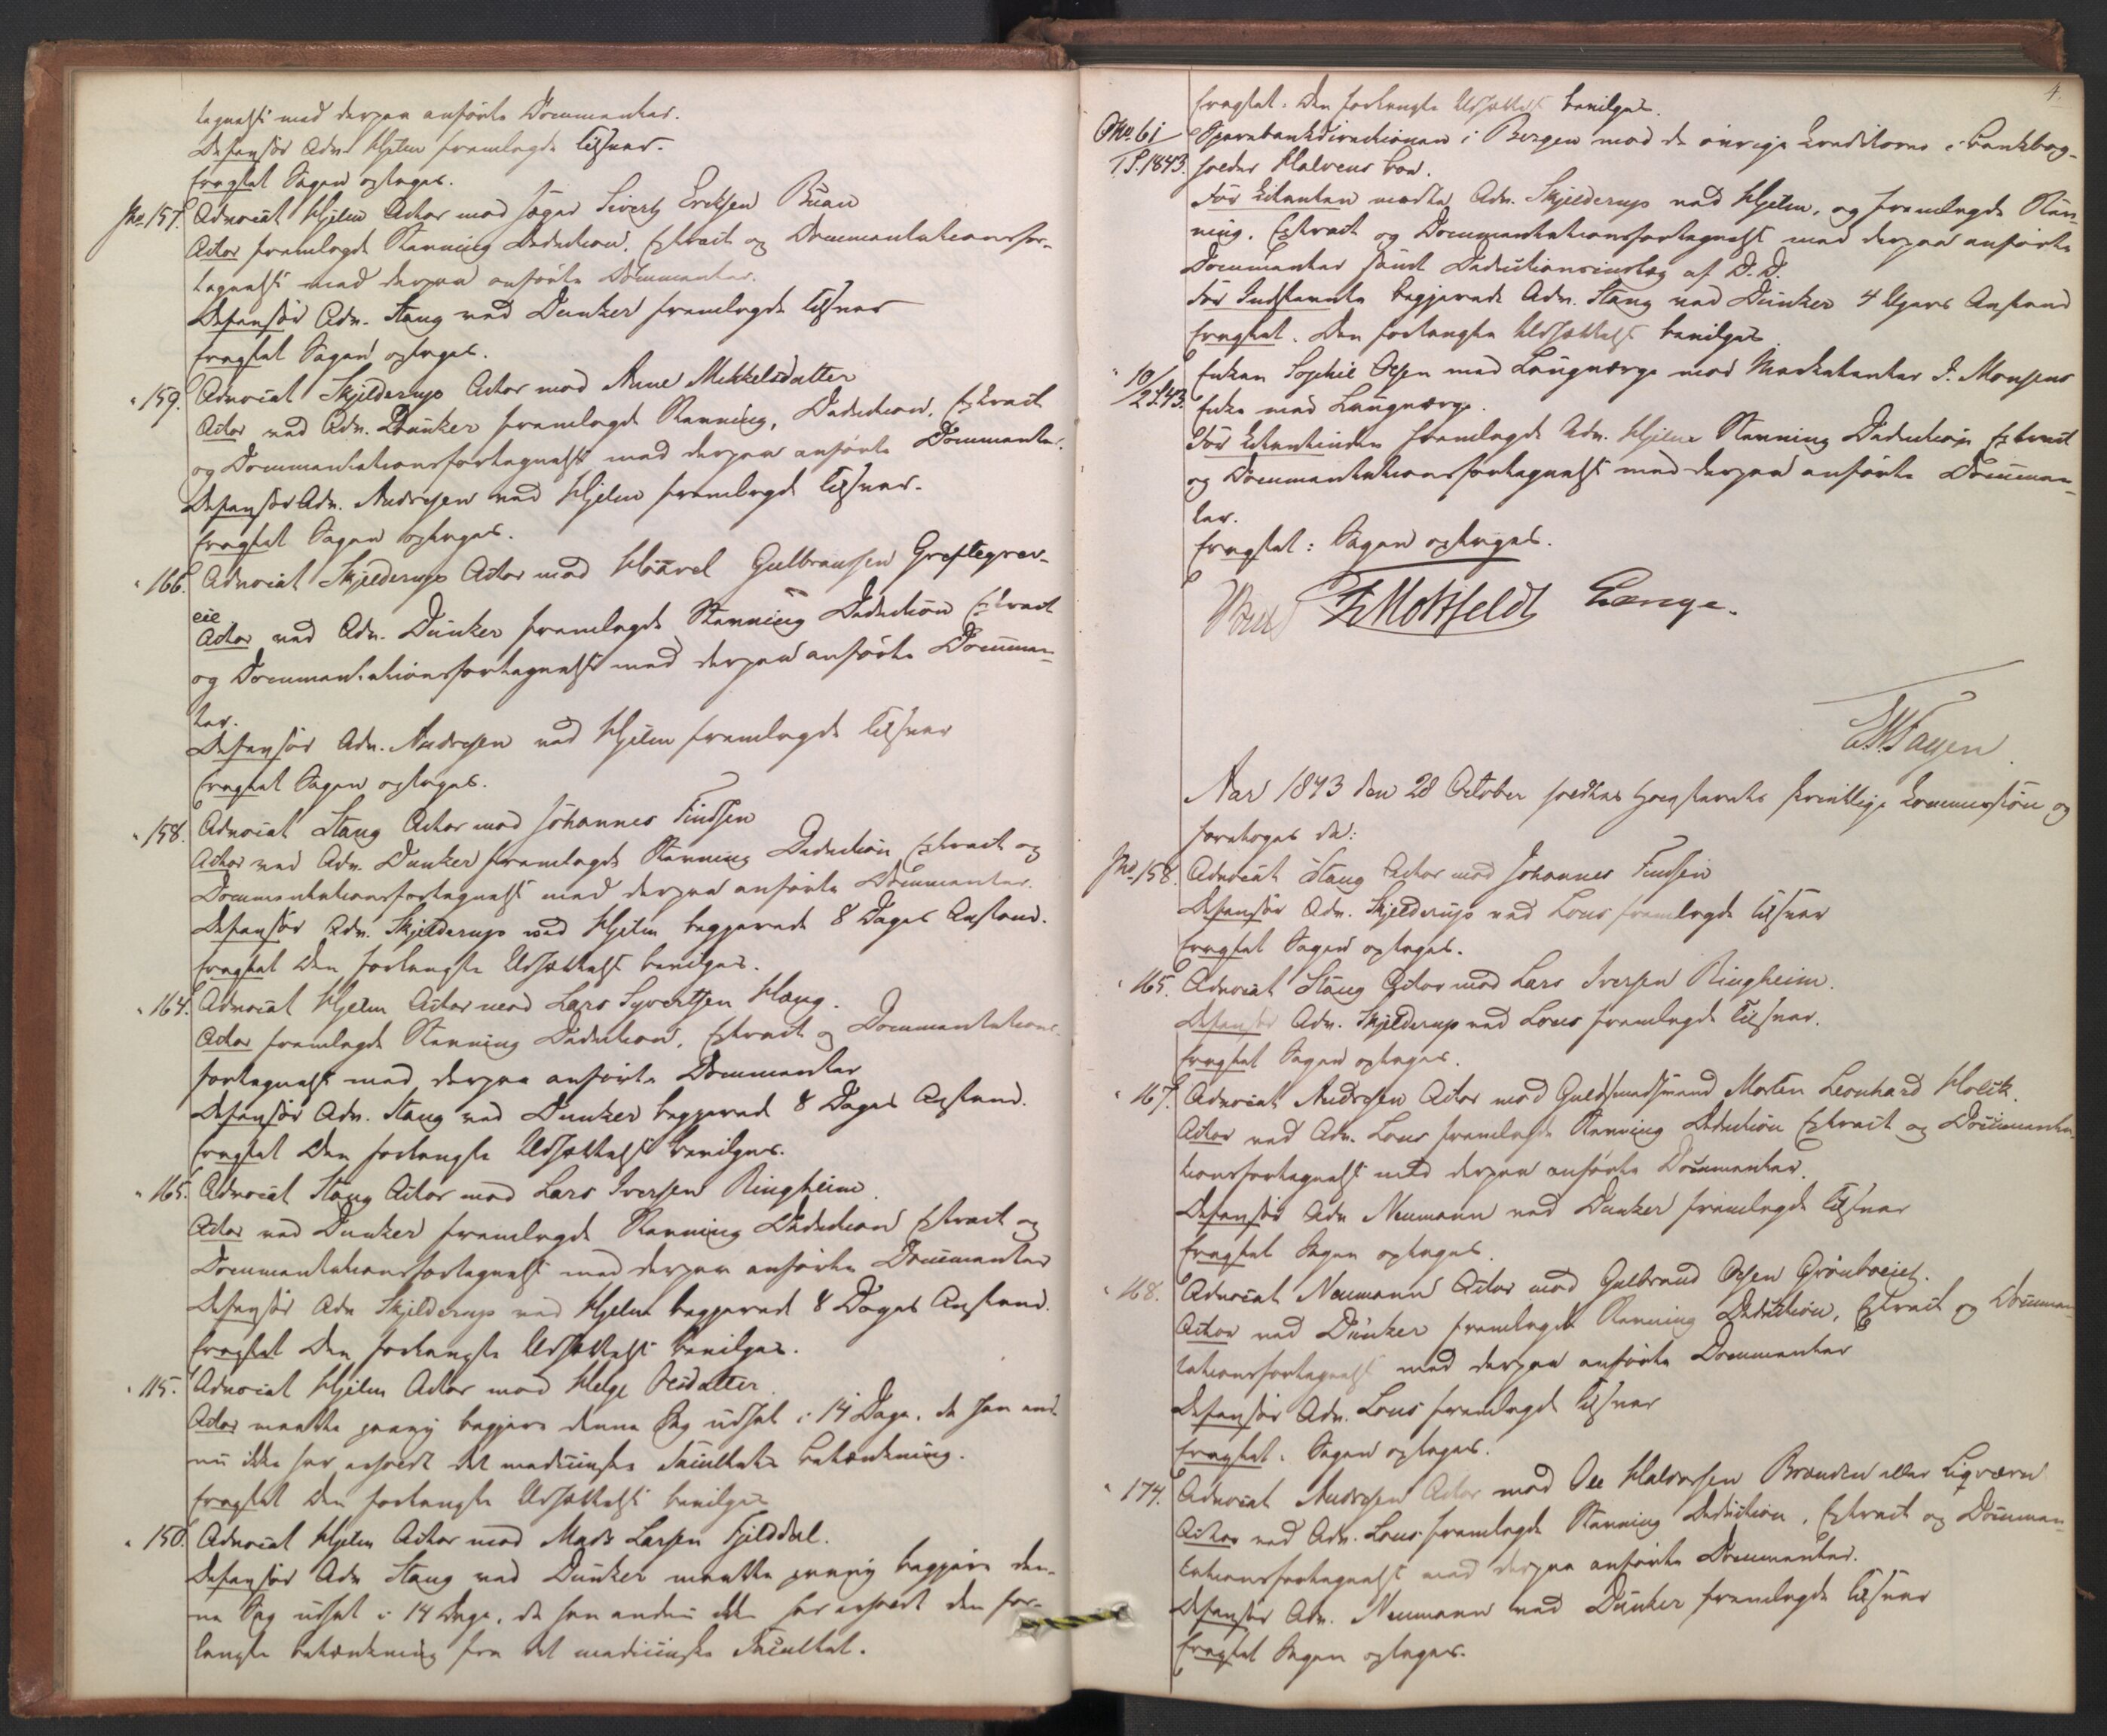 tegnelse med derpaa anførte Documenter.
Defensor Adv. Hjelm fremlagde Tilsvar.
Eragtet Sagen optages.
No. 157. Advocat Hjelm Actor mod Jøger Sivert Ericksen Buan
Actor fremlagde Stævning Deduction, Extract og Documentationsfor-
tegnelse med derpaa anførte Documenter.
Defensor Adv. Stang ved Dunker fremlagde Tilsvar
Eragtet Sagen optages.
" 159. Advocat Skjelderup Actor mod Anne Mikkelsdatter
Actor ved Adv. Dunker fremlagde Stævning, Deduction, Extract
og Documentationsfortegnelse med derpaa anførte Documenter.
Defensor Adv. Andresen ved Hjelm fremlagde Tilsvar.
Eragtet Sagen optages.
" 166. Advocat Skjelderup Actor mod Haavel Gulbransen Greftegrev-
eie
Actor ved Adv. Dunker fremlagde Stævning Deduction Extract
og Documentationsfortegnelse med derpaa anførte Documen-
ter.
Defensor Adv. Andresen ved Hjelm fremlagde Tilsvar
Eragtet Sagen optages.
" 158. Advocat Stang Actor mod Johannes Findsen
Actor ved Adv. Dunker fremlagde Stævning Deduction Extract og
Documentationsfortegnelse med derpaa anførte Documenter.
Defensor Adv. Skjelderup ved Hjelm begjerede 8 Dages Anstand.
Eragtet Den forlangte Udsættelse bevilges.
" 164. Advocat Hjelm Actor mod Lars Syvertsen Haug.
Actor fremlagde Stævning Deduction, Extract og Documentations-
fortegnelse med derpaa anførte Documenter
Defensor Adv. Stang ved Dunker begjerede 8 Dages Anstand.
Eragtet Den forlangte Udsættelse bevilges.
" 165. Advocat Stang Actor mod Lars Iversen Ringheim
Actor ved Dunker fremlagde Stævning Deduction Extract og
Documentationsfortegnelse med derpaa anførte Documenter
Defensor Adv Skjelderup ved Hjelm begjerede 8 Dages Anstand.
Eragtet Den forlangte Udsættelse bevilges.
" 115. Advocat Hjelm Actor mod Helge Olsdatter
Actor maatte paany begjere denne Sag udsat i 14 Dage, da han end-
nu ikke har erholdt det medicinske Facultets Betænkning.
Eragtet Den forlangte Udsættelse bevilges
" 150. Advocat Hjelm Actor mod Mads Larsen Fjelddal.
Defensor Adv Stang ved Dunker maatte paany begjære den-
ne Sag udsat i 14 Dage, da han endnu ikke har erholdt den for-
langte Betænkning fra det medicinske Facultet.
4.
Eragtet. Den forlangte Udsættelse bevilges.
No. 61 Sparebankdirectionen i Bergen mod de øvrige Creditorer i Bankbog-
1 S. 1843. holder Halvens Boe.
For Citanten mødte Adv. Skjelderup ved Hjelm, og fremlagde Stæv-
ning, Extract og Documentationsfortegnelse med derpaa anførte
Documenter samt Deductionsindlæg af D. D.
For Indstævnte begjerede Adv. Stang ved Dunker 4 Ugers Anstand
Eragtet. Den forlangte Udsættelse bevilges
" 10/2 S. 43. Enken Sophie Olsen med Laugværge mod Marketenter J. Monsens
Enke med Laugværge.
For Citantinden fremlagde Adv. Hjelm Stævning Deduction Extract
og Documentationsfortegnelse med derpaa anførte Documen-
ter.
Eragtet: Sagen optages.
F. Motzfeldt Lange.
Aar 1843 den 28 October holdtes Høiesterets skriftlige Commission og
foretoges da:
No. 158. Advocat Stang Actor mod Johannes Findsen
Defensor Adv. Skjelderup ved Lous fremlagde Tilsvar
Eragtet Sagen optages.
" 165. Advocat Stang Actor mod Lars Iversen Ringheim.
Defensor Adv. Skjelderup ved Lous fremlagde Tilsvar.
Eragtet Sagen optages.
" 167. Advocat Andresen Actor mod Guldsmedsvend Morten Leonhard Holck.
Actor ved Adv. Lous fremlagde Stævning Deduction Extract og Documenta-
tionsfortegnelse med derpaa anførte Documenter.
Defensor Adv Neumann ved Dunker fremlagde Tilsvar
Eragtet Sagen optages.
" 168. Advocat Neumann Actor mod Gulbrand Olsen Grønboeiet.
Actor ved Dunker fremlagde Stævning Deduction, Extract og Documen-
tationsfortegnelse med derpaa anførte Documenter
Defensor Adv. Lous fremlagde Tilsvar
Eragtet. Sagen optages.
" 174. Advocat Andresen Actor mod Ole Halvorsen Brænden eller Liqværn
Actor ved Adv. Lous fremlagde Stævning Deduction, Extract og Documen-
tationsfortegnelse med derpaa anførte Documenter.
Defensor Adv. Neumann ved Dunker fremlagde Tilsvar
Eragtet Sagen optages.